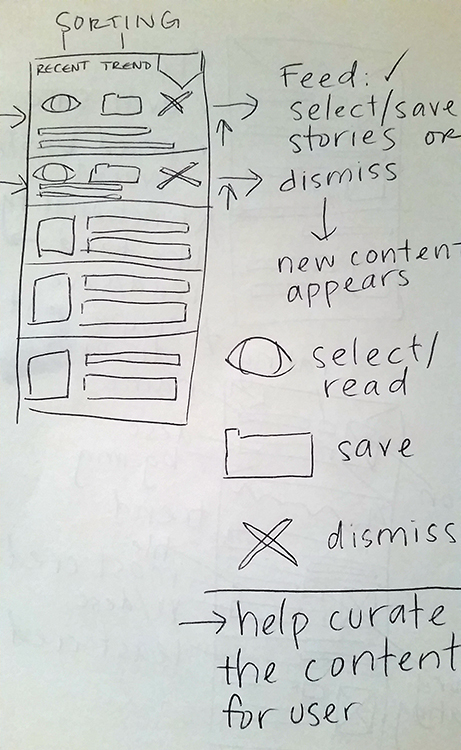 SORTING
RECENT TREND
Feed: ✓
select/save
stories or
dismiss
new content
appears
select/
read
save
dismiss
→ help curate
the content
for user